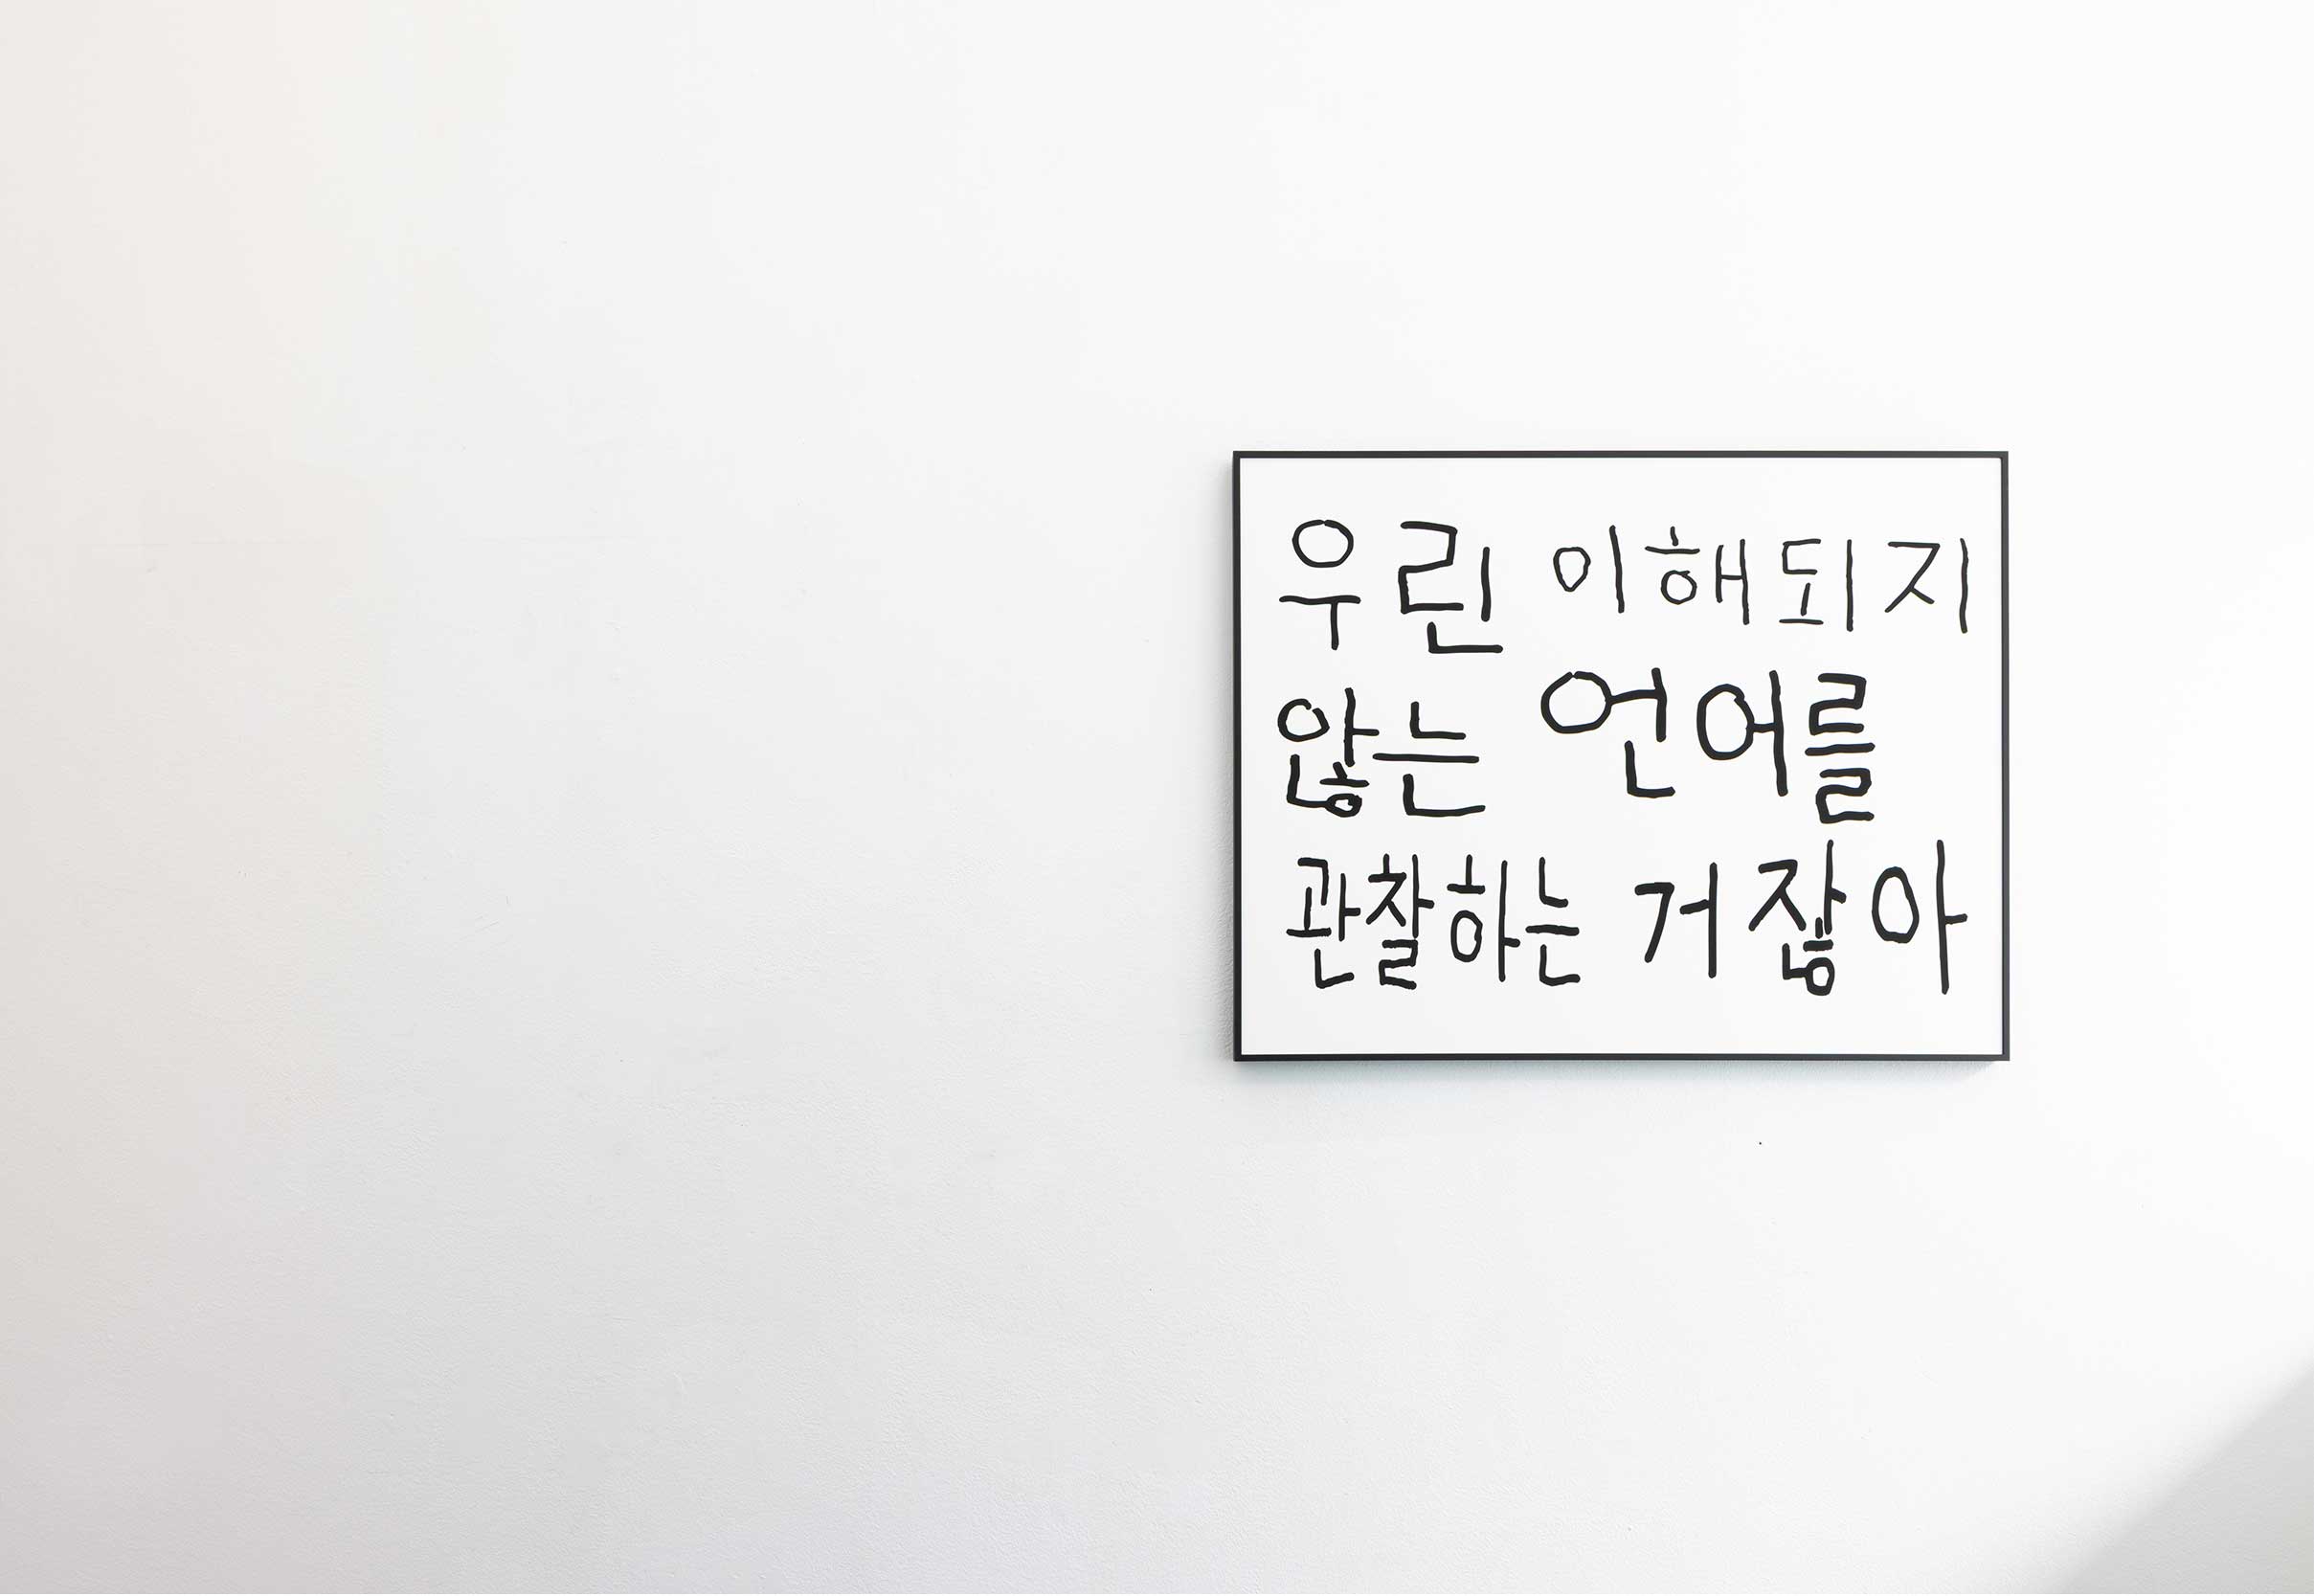 우린 이해되지
않는 언어를
관찰하는 거잖아